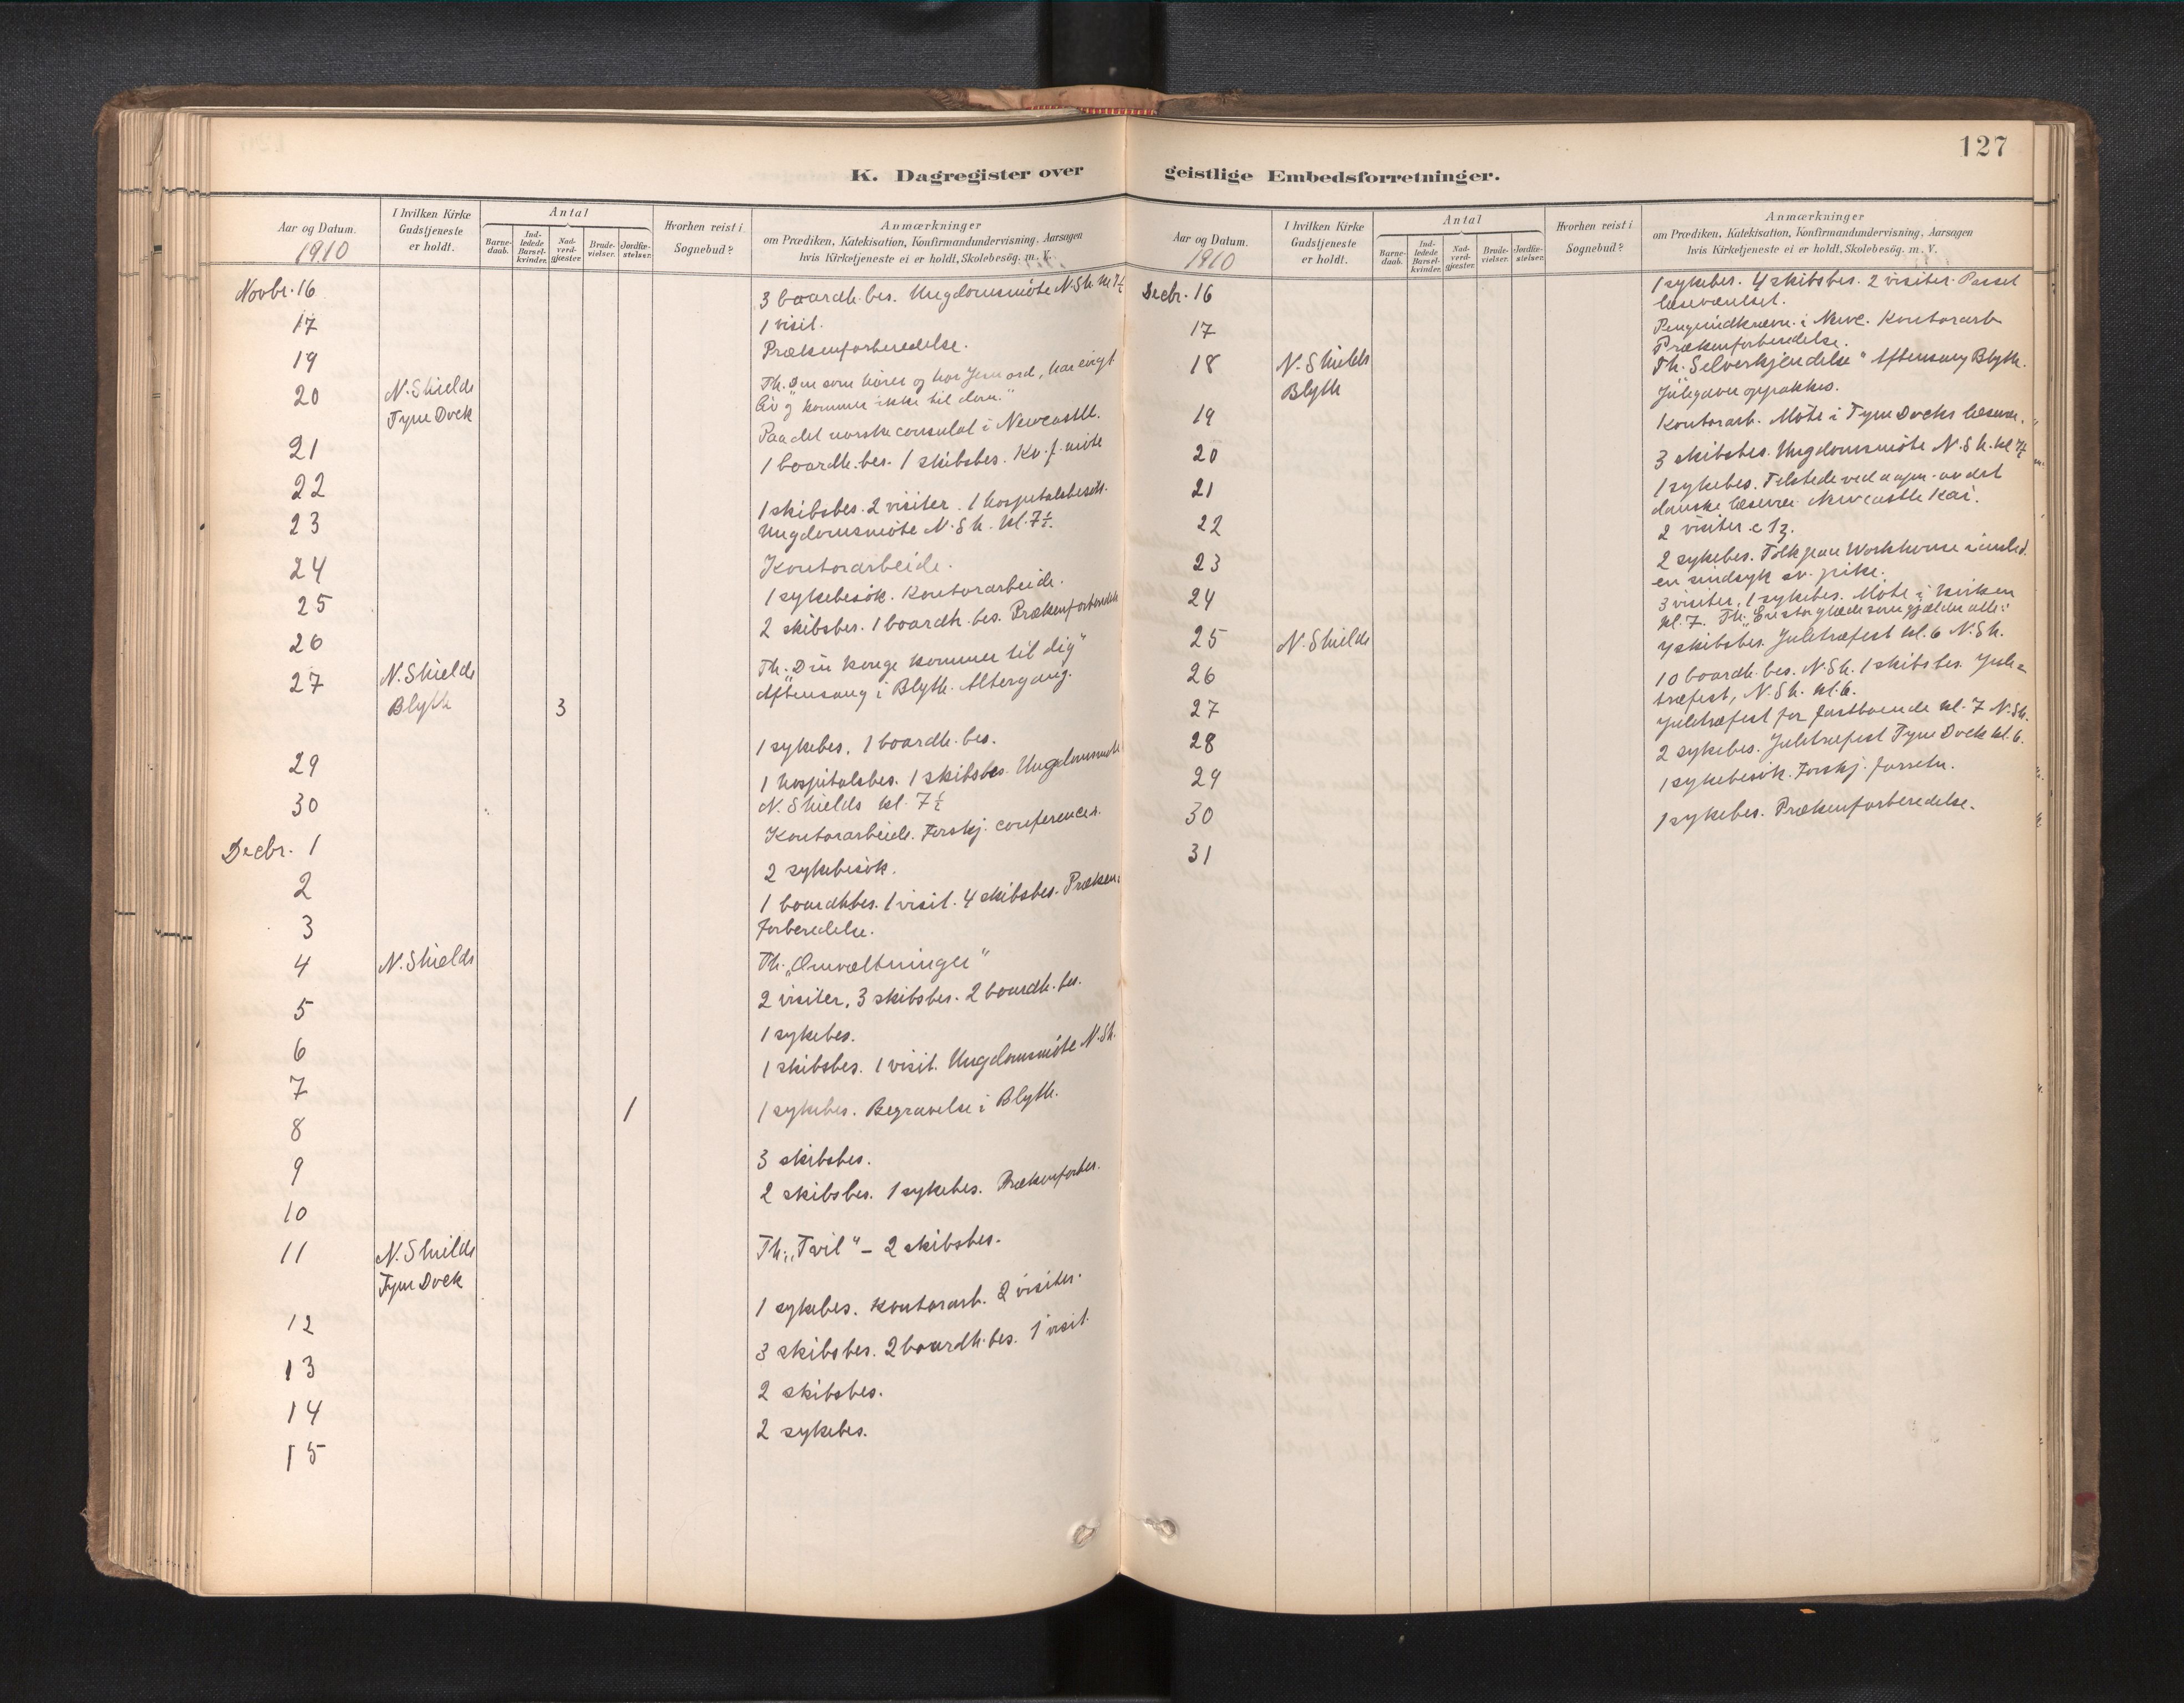 127
K. Dagregister over geistlige Embedsforretninger.
Aar og Datum.
1910
I hvilken Kirke
Gudstjeneste
er holdt.
Antal
Barne-
daab.
Ind-
ledede
Barsel-
kvinder.
Nad-
verd-
gjæster.
Brude-
vielser.
Jordfæ-
stelser.
Hvorhen reist i
Sognebud?
Anmærkninger
om Prædiken, Katekisation, Konfirmandundervisning, Aarsagen
hvis Kirketjeneste ei er holdt, Skolebesög. m. V.
Novbr. 16 3 boardh. bes. Ungdomsmöte N. Sh. kl 7½
17 1 visit.
19 Prækenforberedelse.
20 N. Shields Th. „Den som hörer og hor Jesu ord, har evigt
Tyne Dock liv og kommer ikke til dom."
21 Paa det norske consulat i Newcastle.
22 1 boardh. bes. 1 skibsbes. Kv. f. möte
23 1 skibsbes. 2 visiter. 1 hospitalsbesök.
Ungdomsmöte N. Sh. kl. 7½.
24 Kontorarbeide.
25 1 sykebesök. Kontorarbeide.
26 2 skibsbes. 1 boardh. bes. Prækenforberedelse
27 N. Shields Th. „Din konge kommer til dig"
Blyth 3 Aftensang i Blyth. Altergang.
29 1 sykebes. 1 boardh. bes.
30 1 hospitalsbes. 1 skibsbes. Ungdomsmöte
N. Shields kl. 7½
Decbr. 1 Kontorarbeide. Forskj. conferencer.
2 2 sykebesök.
3 1 boardhbes. 1 visit. 4 skibsbes. Præken-
forberedelse.
4 N. Shields Th. „Omvæltninger"
5 2 visiter, 3 skibsbes. 2 boardh. bes.
6 1 sykebes.
7 1 skibsbes. 1 visit. Ungdomsmöte N. Sh.
8 1 1 sykebes. Begravelse i Blyth.
9 3 skibsbes.
10 2 skibsbes. 1 sykebes. Prækenforber.
11 N. Shields Th. „Tvil" – 2 skibsbes.
Tyne Dock
12 1 sykebes. Kontorarb. 2 visiter.
13 3 skibsbes. 2 boardh. bes. 1 visit.
14 2 skibsbes.
15 2 sykebes.
Aar og Datum.
1910
I hvilken Kirke
Gudstjeneste
er holdt.
Antal
Barne-
daab.
Ind-
ledede
Barsel-
kvinder.
Nad-
verd-
gjæster.
Brude-
vielser.
Jordfæ-
stelser.
Hvorhen reist i
Sognebud?
Anmærkninger
om Prædiken, Katekisation, Konfirmandundervisning, Aarsagen
hvis Kirketjeneste ei er holdt, Skolebesög. m. V.
Decbr. 16 1 sykebes. 4 skibsbes. 2 visiter. Passet
læseværelset.
17 i Newc. Kontorarb.
Prækenforberedelse.
18 N. Shields Th. „Selverkjendelse" Aftensang Blyth.
Blyth Julegaver oppakkes.
19 Kontorarb. Möte i Tyne Docks læsevær.
20 3 skibsbes. Ungdomsmöte N. Sh. kl 7½
21 1 sykebes. Tilstede ved aapn. av det
danske læsevær. Newcastle Kai.
22 2 visiter
23 2 sykebes. Tolk paa Workhouse
en sindsyk sv. pike.
24 3 visiter, 1 sykebes. Möte i kirken
kl. 7. Th. „En stor glæde som gjælder alle."
25 N. Shields 4 skibsbes. Juletræfest kl. 6 N. Sh.
26 10 boardh. bes. N. Sh. 1 skibsbes. Jule-
træfest, N. Sh. kl. 6.
27 Juletræfest for fastboende kl. 7 N. Sh.
28 2 sykebes. Juletræfest Tyne Dock kl. 6.
29 1 sykebesök. Forskj. forretn.
30 1 sykebes. Prækenforberedelse.
31